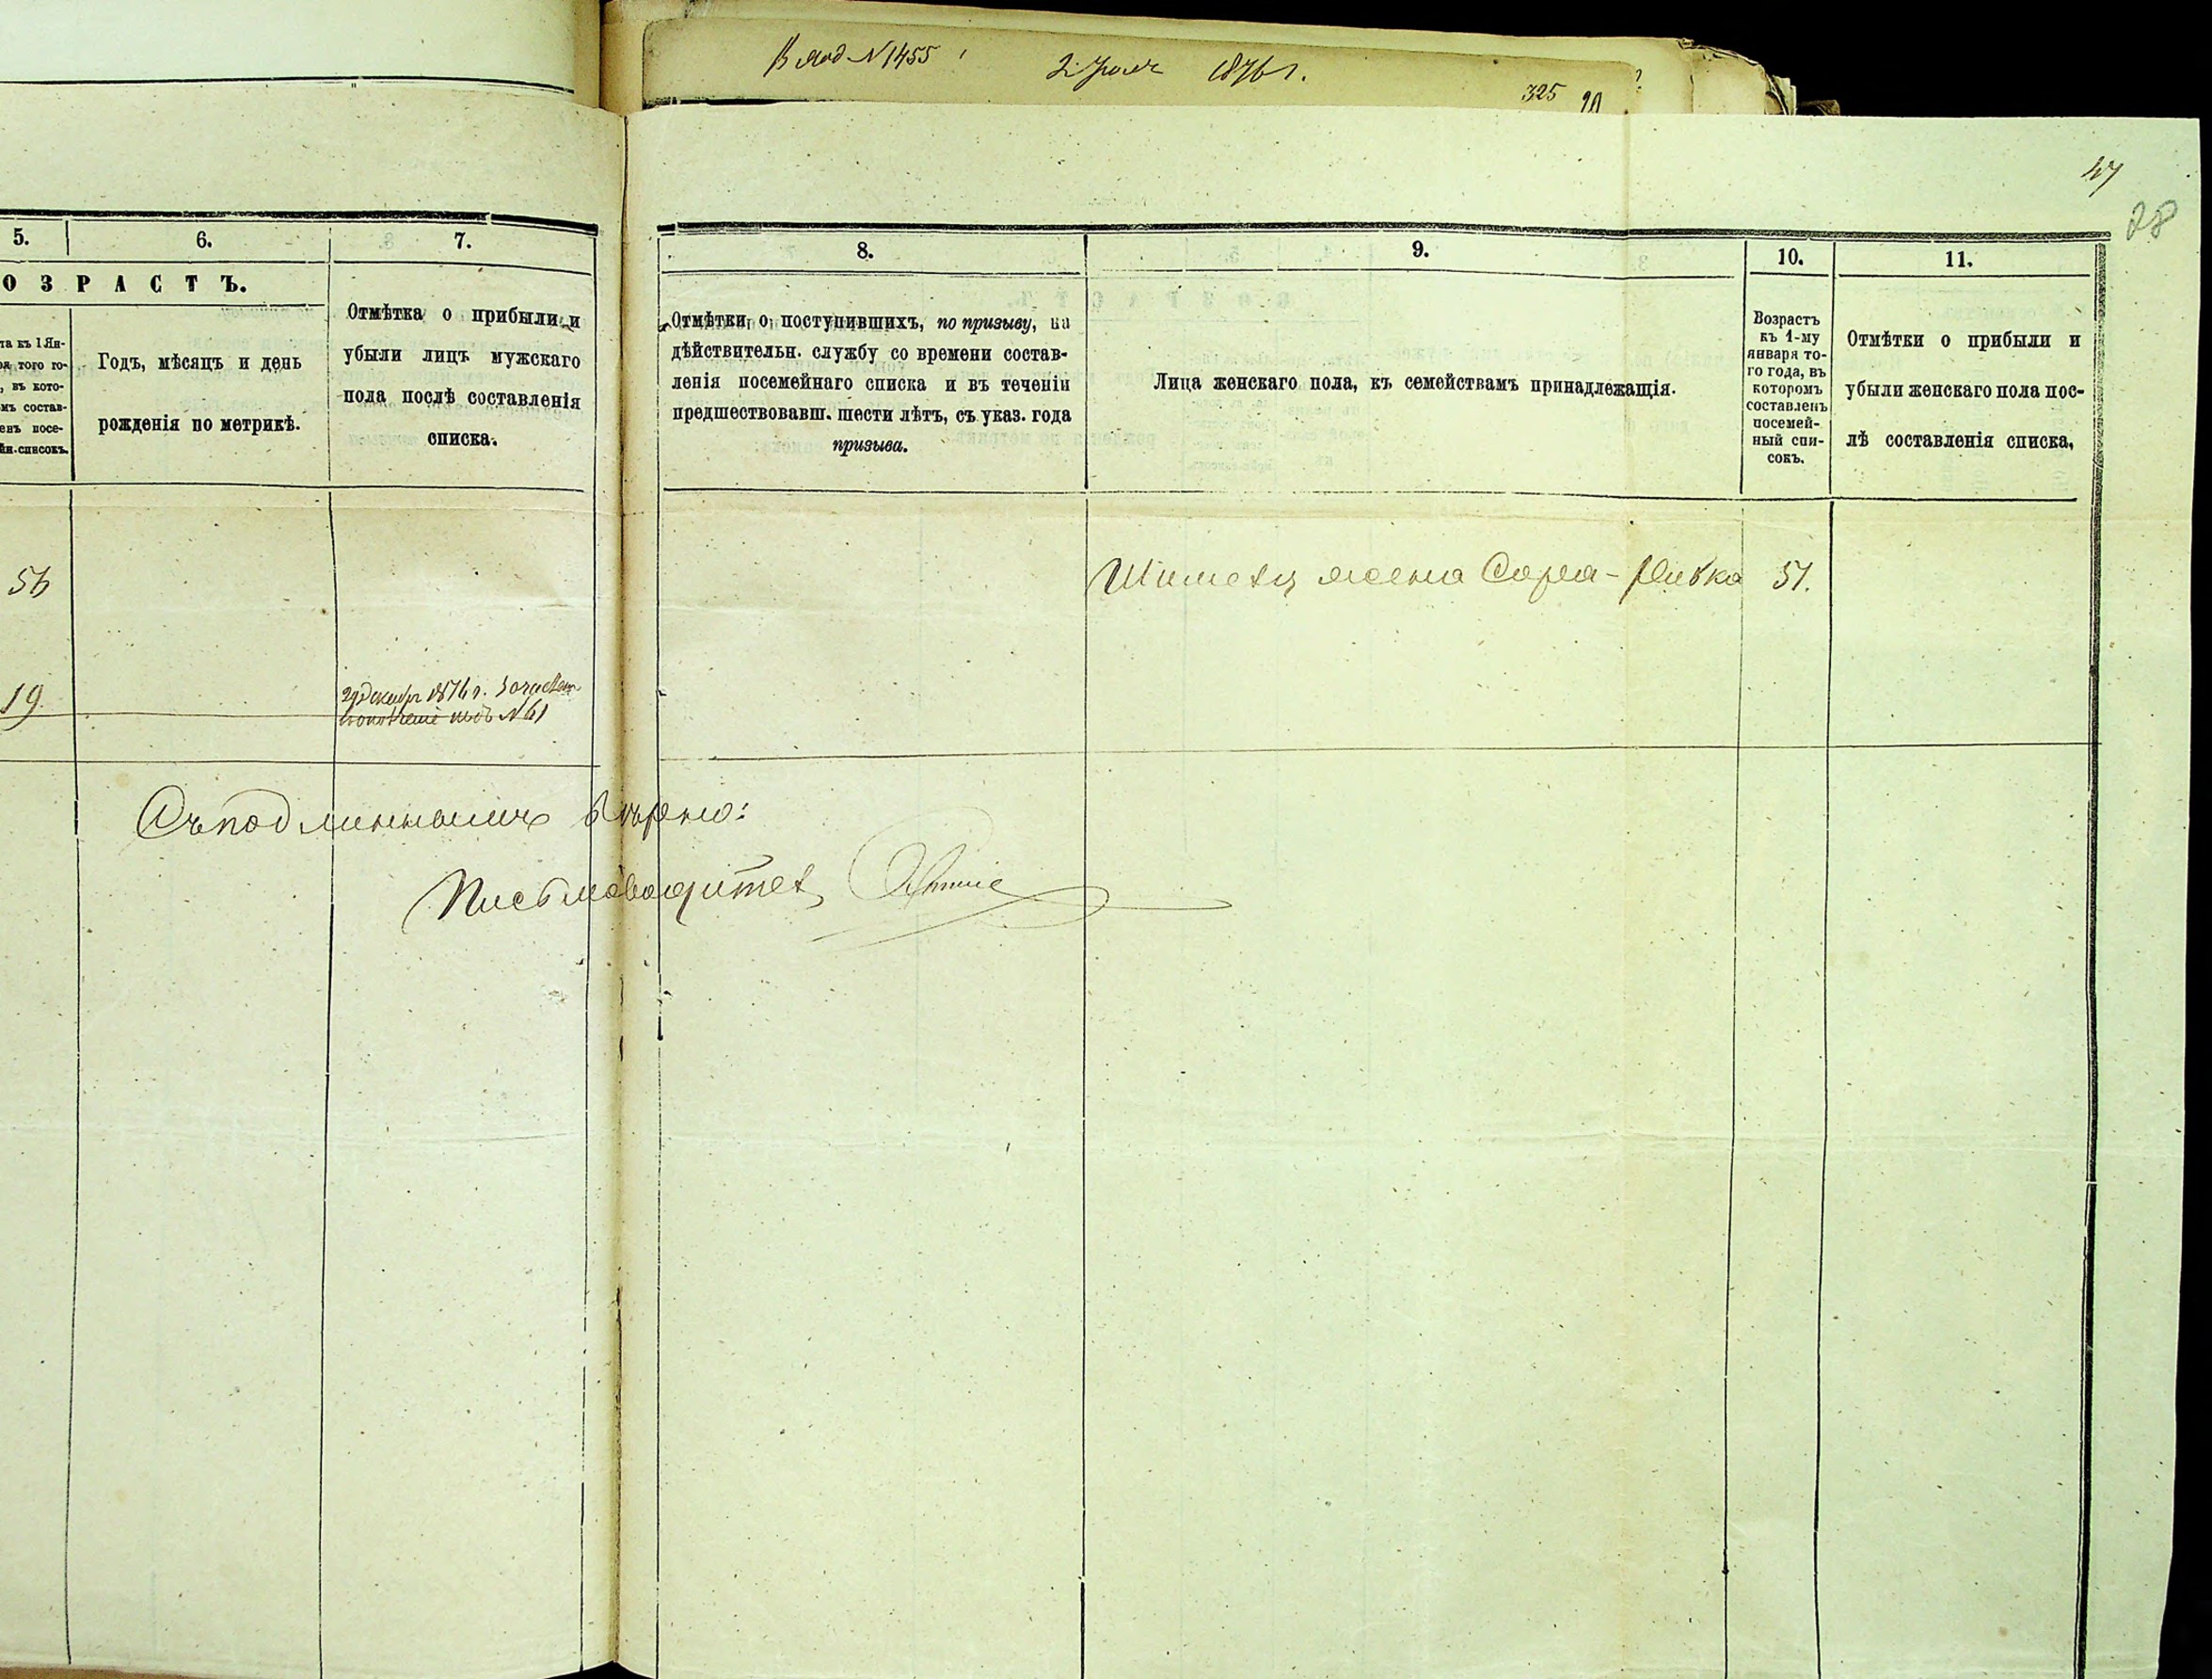 В яод №1455 2 Іюля 1876 г.
325
47
28
5.
6.
7.
ОЗРАСТЪ.
та къ 1 Ян-
ря того го-
, въ кото-
мъ состав-
енъ посе-
йн. списокъ.
Годъ, мѣсяцъ и день
рожденія по метрикѣ.
Отмѣтка о прибыли и
убыли лицъ мужскаго
пола послѣ составленія
списка.
56
19
29 Декабря 1876 г. Зачислен
№ 61
8.
9.
10.
11.
Отмѣтки о поступившихъ, по призыву, на
дѣйствительн. службу со времени состав-
ленія посемейнаго списка и въ теченіи
предшествовавш. шести лѣтъ, съ указ. года
призыва.
Лица женскаго пола, къ семействамъ принадлежащія.
Возрастъ
къ 1-му
января то-
го года, въ
которомъ
составленъ
посемей-
ный спи-
сокъ.
Отмѣтки о прибыли и
убыли женскаго пола пос-
лѣ составленія списка,
жена Сора-Ривка 51.
Съ подлиннымъ вѣрно:
Письмоводитель